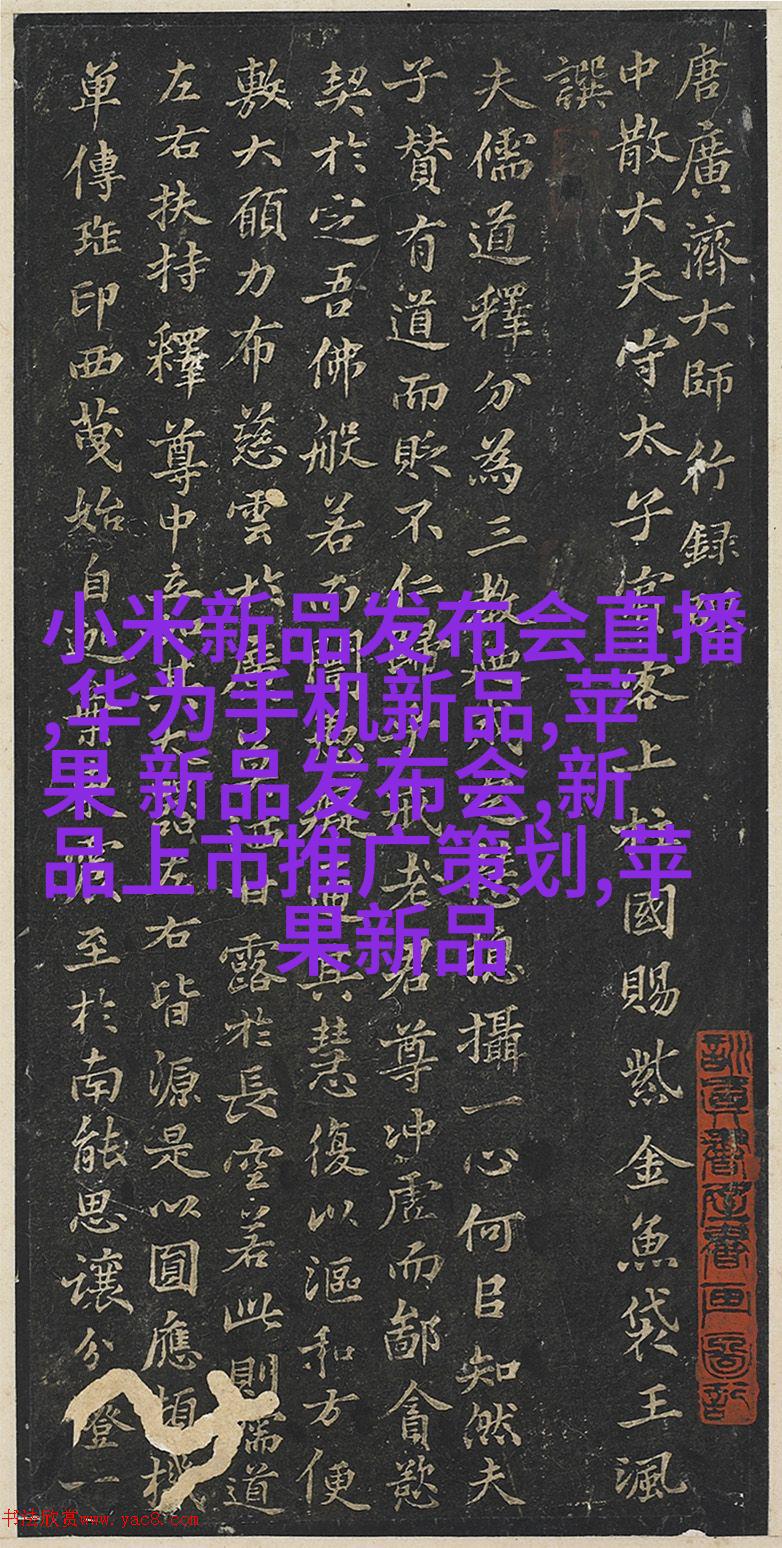 唐廣濟大師行録
中散大夫守太子賓客上柱國賜紫金魚袋王渢
譔
夫儒道釋分為三教攝一心何㠯知然夫
子贊有道而貶不仁歸戒老君尊冲虛而鄙貪慾
契於定吾佛般若而開其慧復以漚和方便
敷大願力布慈雲於甘露於長空若此則儒道
左右扶持釋尊中左右皆源是以圓應頓機
單傳印西始自迦葉至於南能思讓分燈一
小米新品发布会直播
,华为手机新品,苹
果 新品发布会,新
品上市推广策划,苹
果新品
书法欣赏www.yac8.com